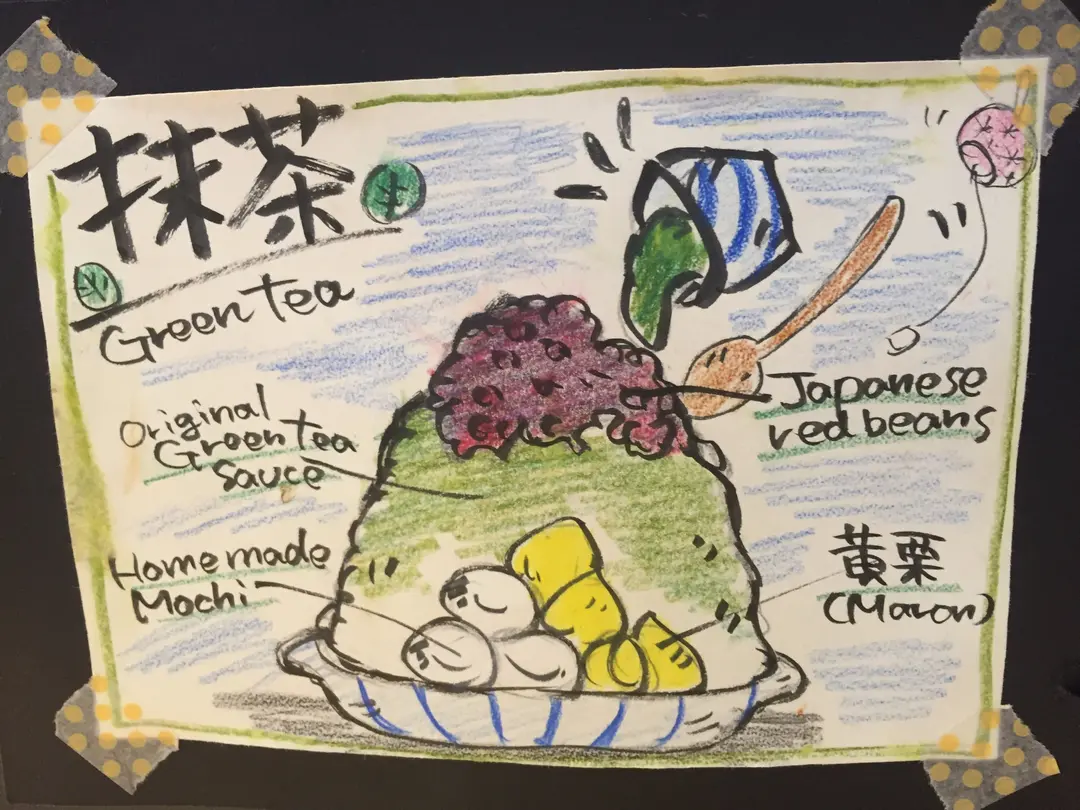 抹茶
Green tea
Original
Green tea
sauce
Homemade
Mochi
Japanese
red beans
黄栗
(Maron)